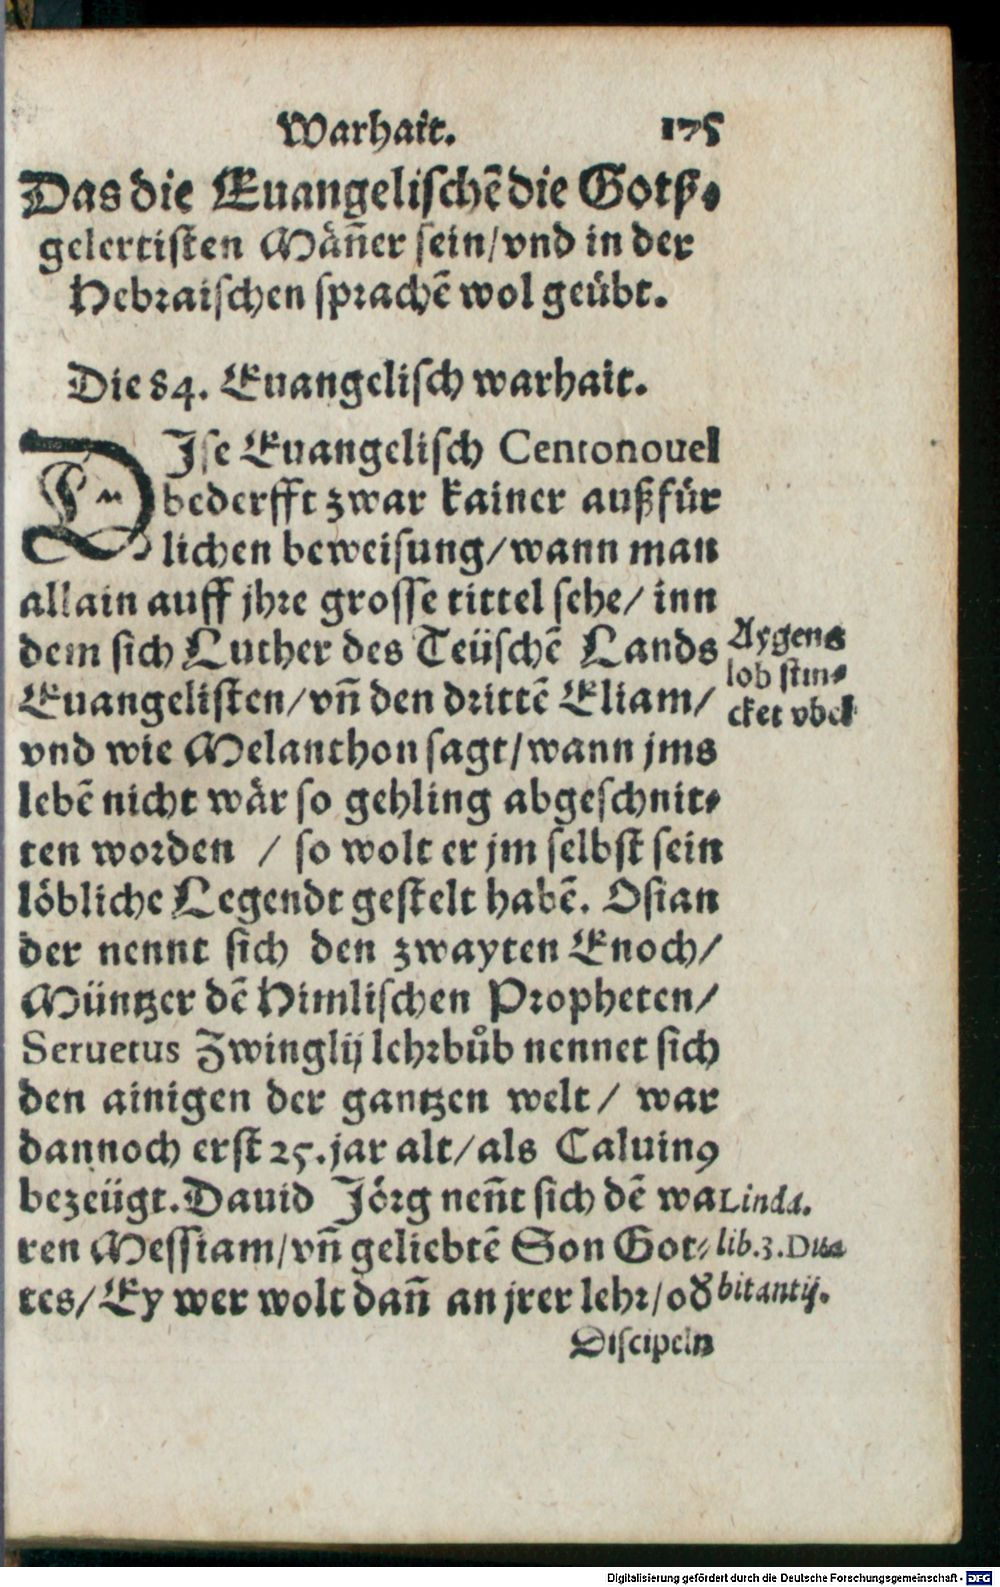 Warhait. 175
Das die Euangelischẽ die Gotß⸗
gelertisten Mäñer sein/ vnd in der
Hebraischen sprachẽ wol geübt.
Die 84. Euangelisch warhait.
DJse Euangelisch Centonouel
bederfft zwar kainer außfür
lichen beweisung/ wann man
allain auff jhre grosse tittel sehe/ inn
dem sich Luther des Teüschẽ Lands
Euangelisten/ vñ den drittẽ Eliam/
vnd wie Melanthon sagt/ wann jms
lebẽ nicht wär so gehling abgeschnit⸗
ten worden / so wolt er jm selbst sein
löbliche Legendt gestelt habẽ. Osian
der nennt sich den zwayten Enoch/
Müntzer dẽ Himlischen Propheten/
Seruetus Zwinglij lehrbůb nennet sich
den ainigen der gantzen welt/ war
dannoch erst 25. jar alt/ als Caluinꝰ
bezeügt. Dauid Jörg neñt sich dẽ wa
ren Messiam/ vñ geliebtẽ Son Got⸗
tes/ Ey wer wolt dañ an jrer lehr/ oď
Discipeln
Aygens
lob stin⸗
cket vbel
Linda.
lib.3. Du⸗
bitantij.
Digitalisierung gefördert durch die Deutsche Forschungsgemeinschaft - DFG